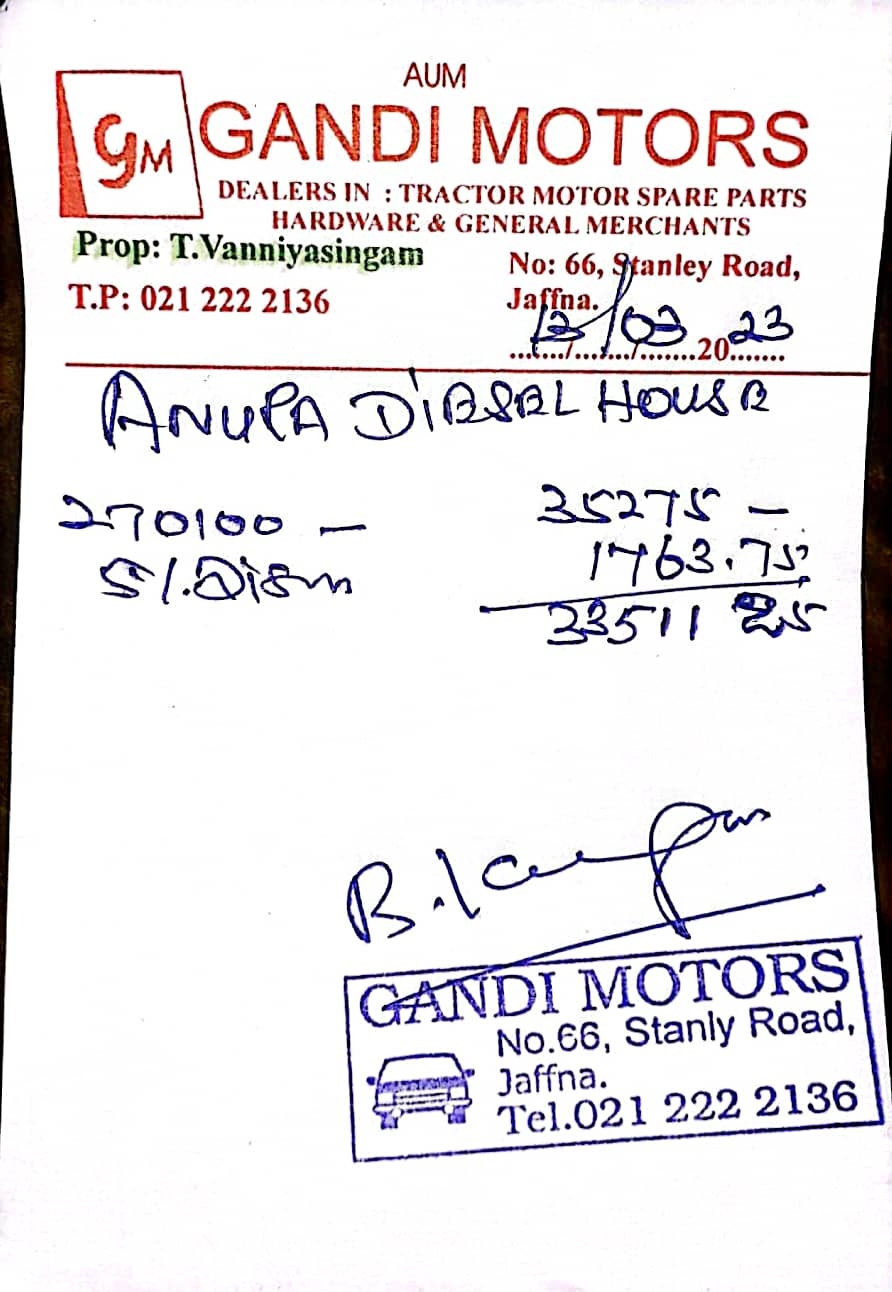 AUM
GM GANDI MOTORS
DEALERS IN : TRACTOR MOTOR SPARE PARTS
HARDWARE & GENERAL MERCHANTS
Prop: T.Vanniyasingam
No: 66, Stanley Road,
T.P: 021 222 2136
Jaffna.
13/03 2023
ANUPA DIESEL HOUSE
270100 – 35275 –
5%. 1763.75
33511 25
GANDI MOTORS
No.66, Stanly Road,
Jaffna.
Tel.021 222 2136